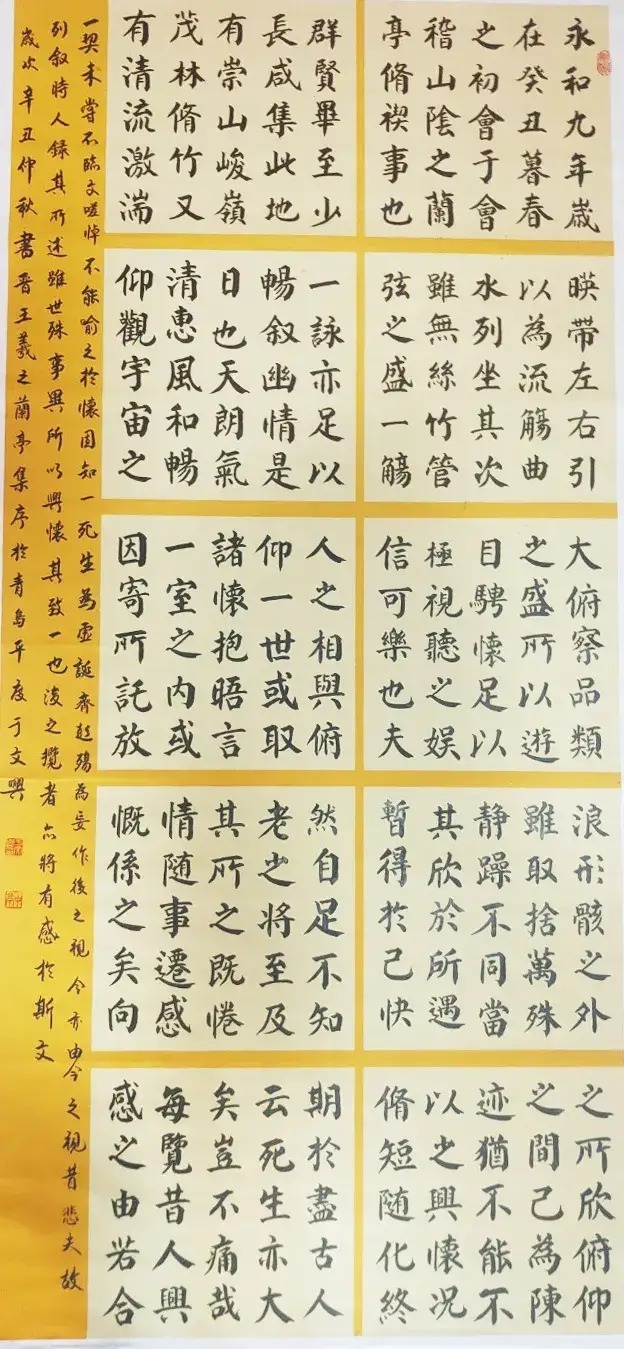 永和九年歲
在癸丑暮春
之初會于會
稽山陰之蘭
亭脩禊事也
群賢畢至少
長咸集此地
有崇山峻嶺
茂林脩竹又
有清流激湍
暎帶左右引
以為流觴曲
水列坐其次
雖無絲竹管
弦之盛一觴
一詠亦足以
暢叙幽情是
日也天朗氣
清惠風和暢
仰觀宇宙之
大俯察品類
之盛所以遊
目騁懷足以
極視聽之娱
信可樂也夫
人之相與俯
仰一世或取
諸懷抱晤言
一室之内或
因寄所託放
浪形骸之外
雖取捨萬殊
静躁不同當
其欣於所遇
暫得於己快
然自足不知
老之將至及
其所之既惓
情随事遷感
慨係之矣向
之所欣俯仰
之間已為陳
迹猶不能不
以之興懷况
脩短随化終
期於盡古人
云死生亦大
矣豈不痛哉
每覽昔人興
感之由若合
一契未嘗不臨文嗟悼不能喻之於懷固知一死生為虛誕齊彭殤為妄作後之視今亦由今之視昔悲夫故
列叙時人錄其所述雖世殊事異所以興懷其致一也後之攬者亦將有感於斯文
歲次辛丑仲秋書晋王羲之蘭亭集序於青島平度于文興